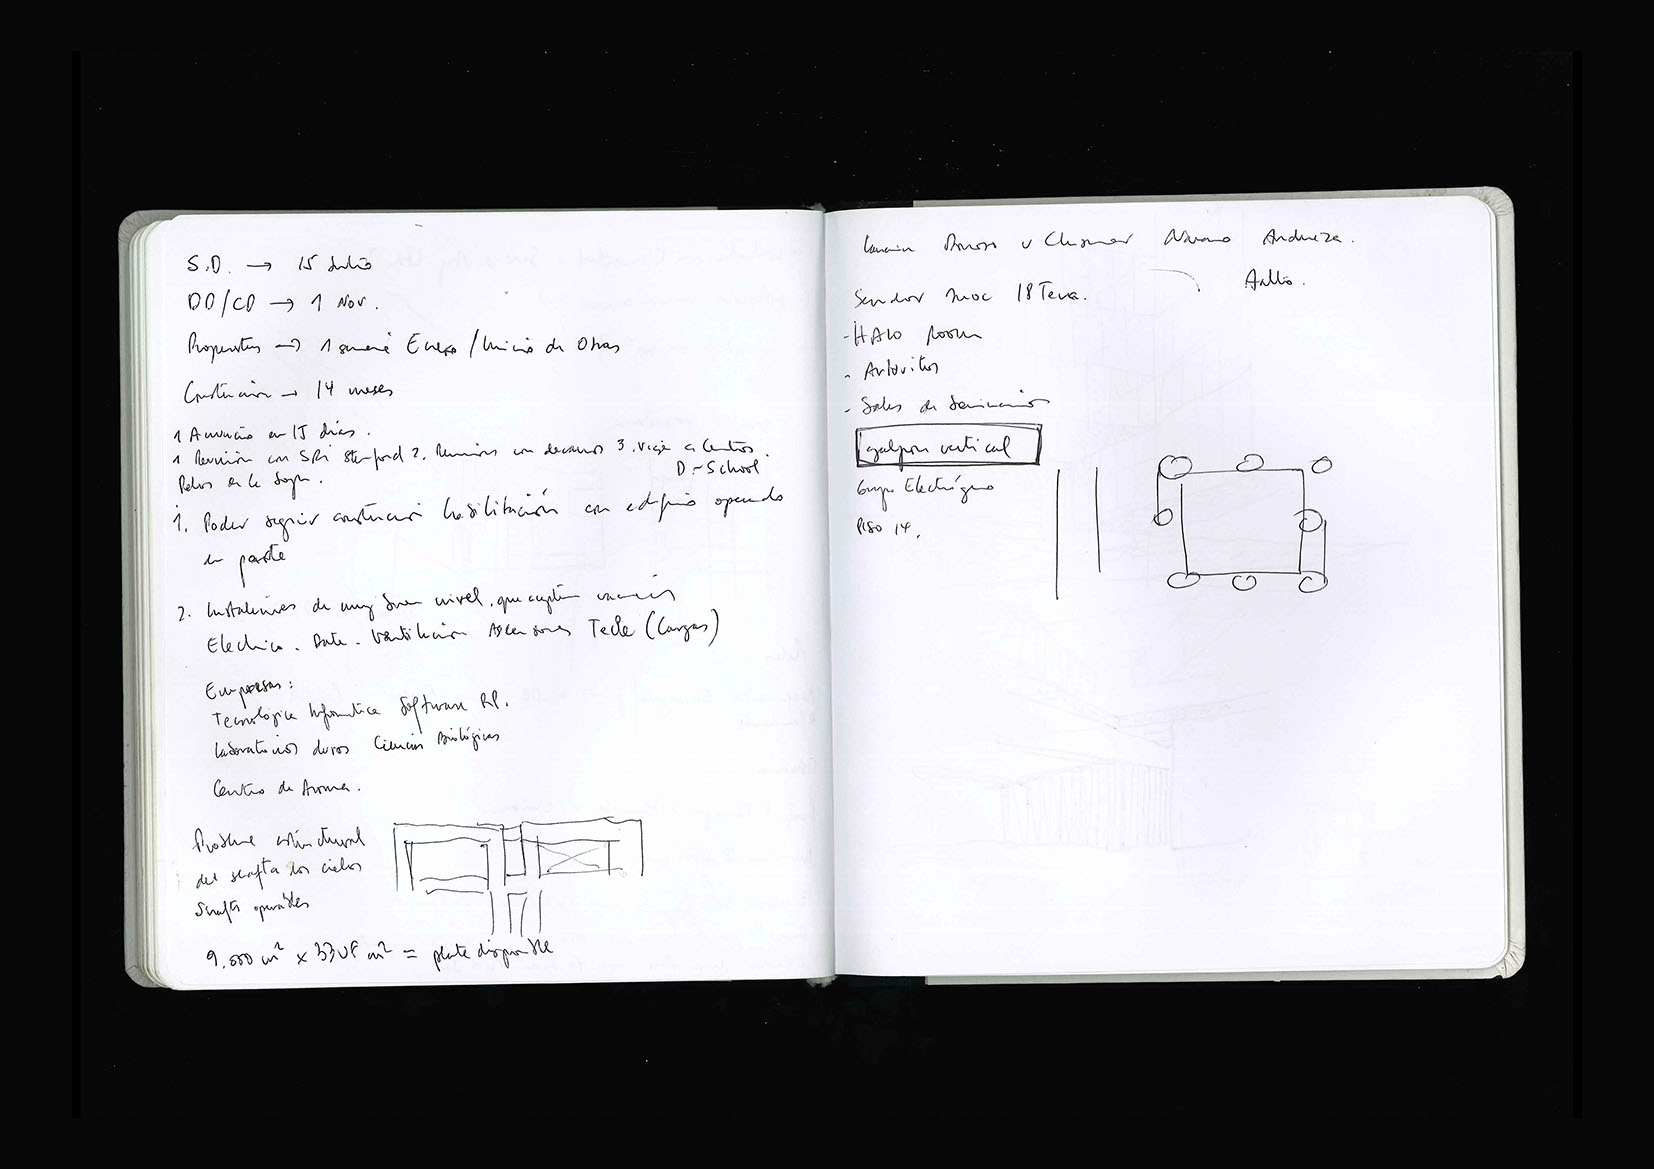 S.D. → 15 Julio
DD/CD → 1 Nov.
Propuestas → 1 semana Enero / Inicio de Obras
Construcción → 14 meses
1 Anuncio en 15 días.
1 Reunión con SRI Stanford 2. Reunión con decanos 3. viaje a Centros.
D-School
1. Poder seguir construcción habilitación con edificio operando
en parte
2. Instalaciones de muy buen nivel, que acepten
Electrico. Data. Ventilación Ascensores Tecle (Cargas)
Empresas:
Tecnológica Informatica Software RP.
Laboratorios duros Ciencias Biológicas
Centro de Aroma.
estructural
del shaft a los cielos
Shafts operables
9.000 m² x 33 UF m² = plata disponible
Andreza.
18 Teva.
- HALO Room
- Auditorios
- Salas de Seminarios
galpon vertical
Grupo Electrógeno
PISO 14.